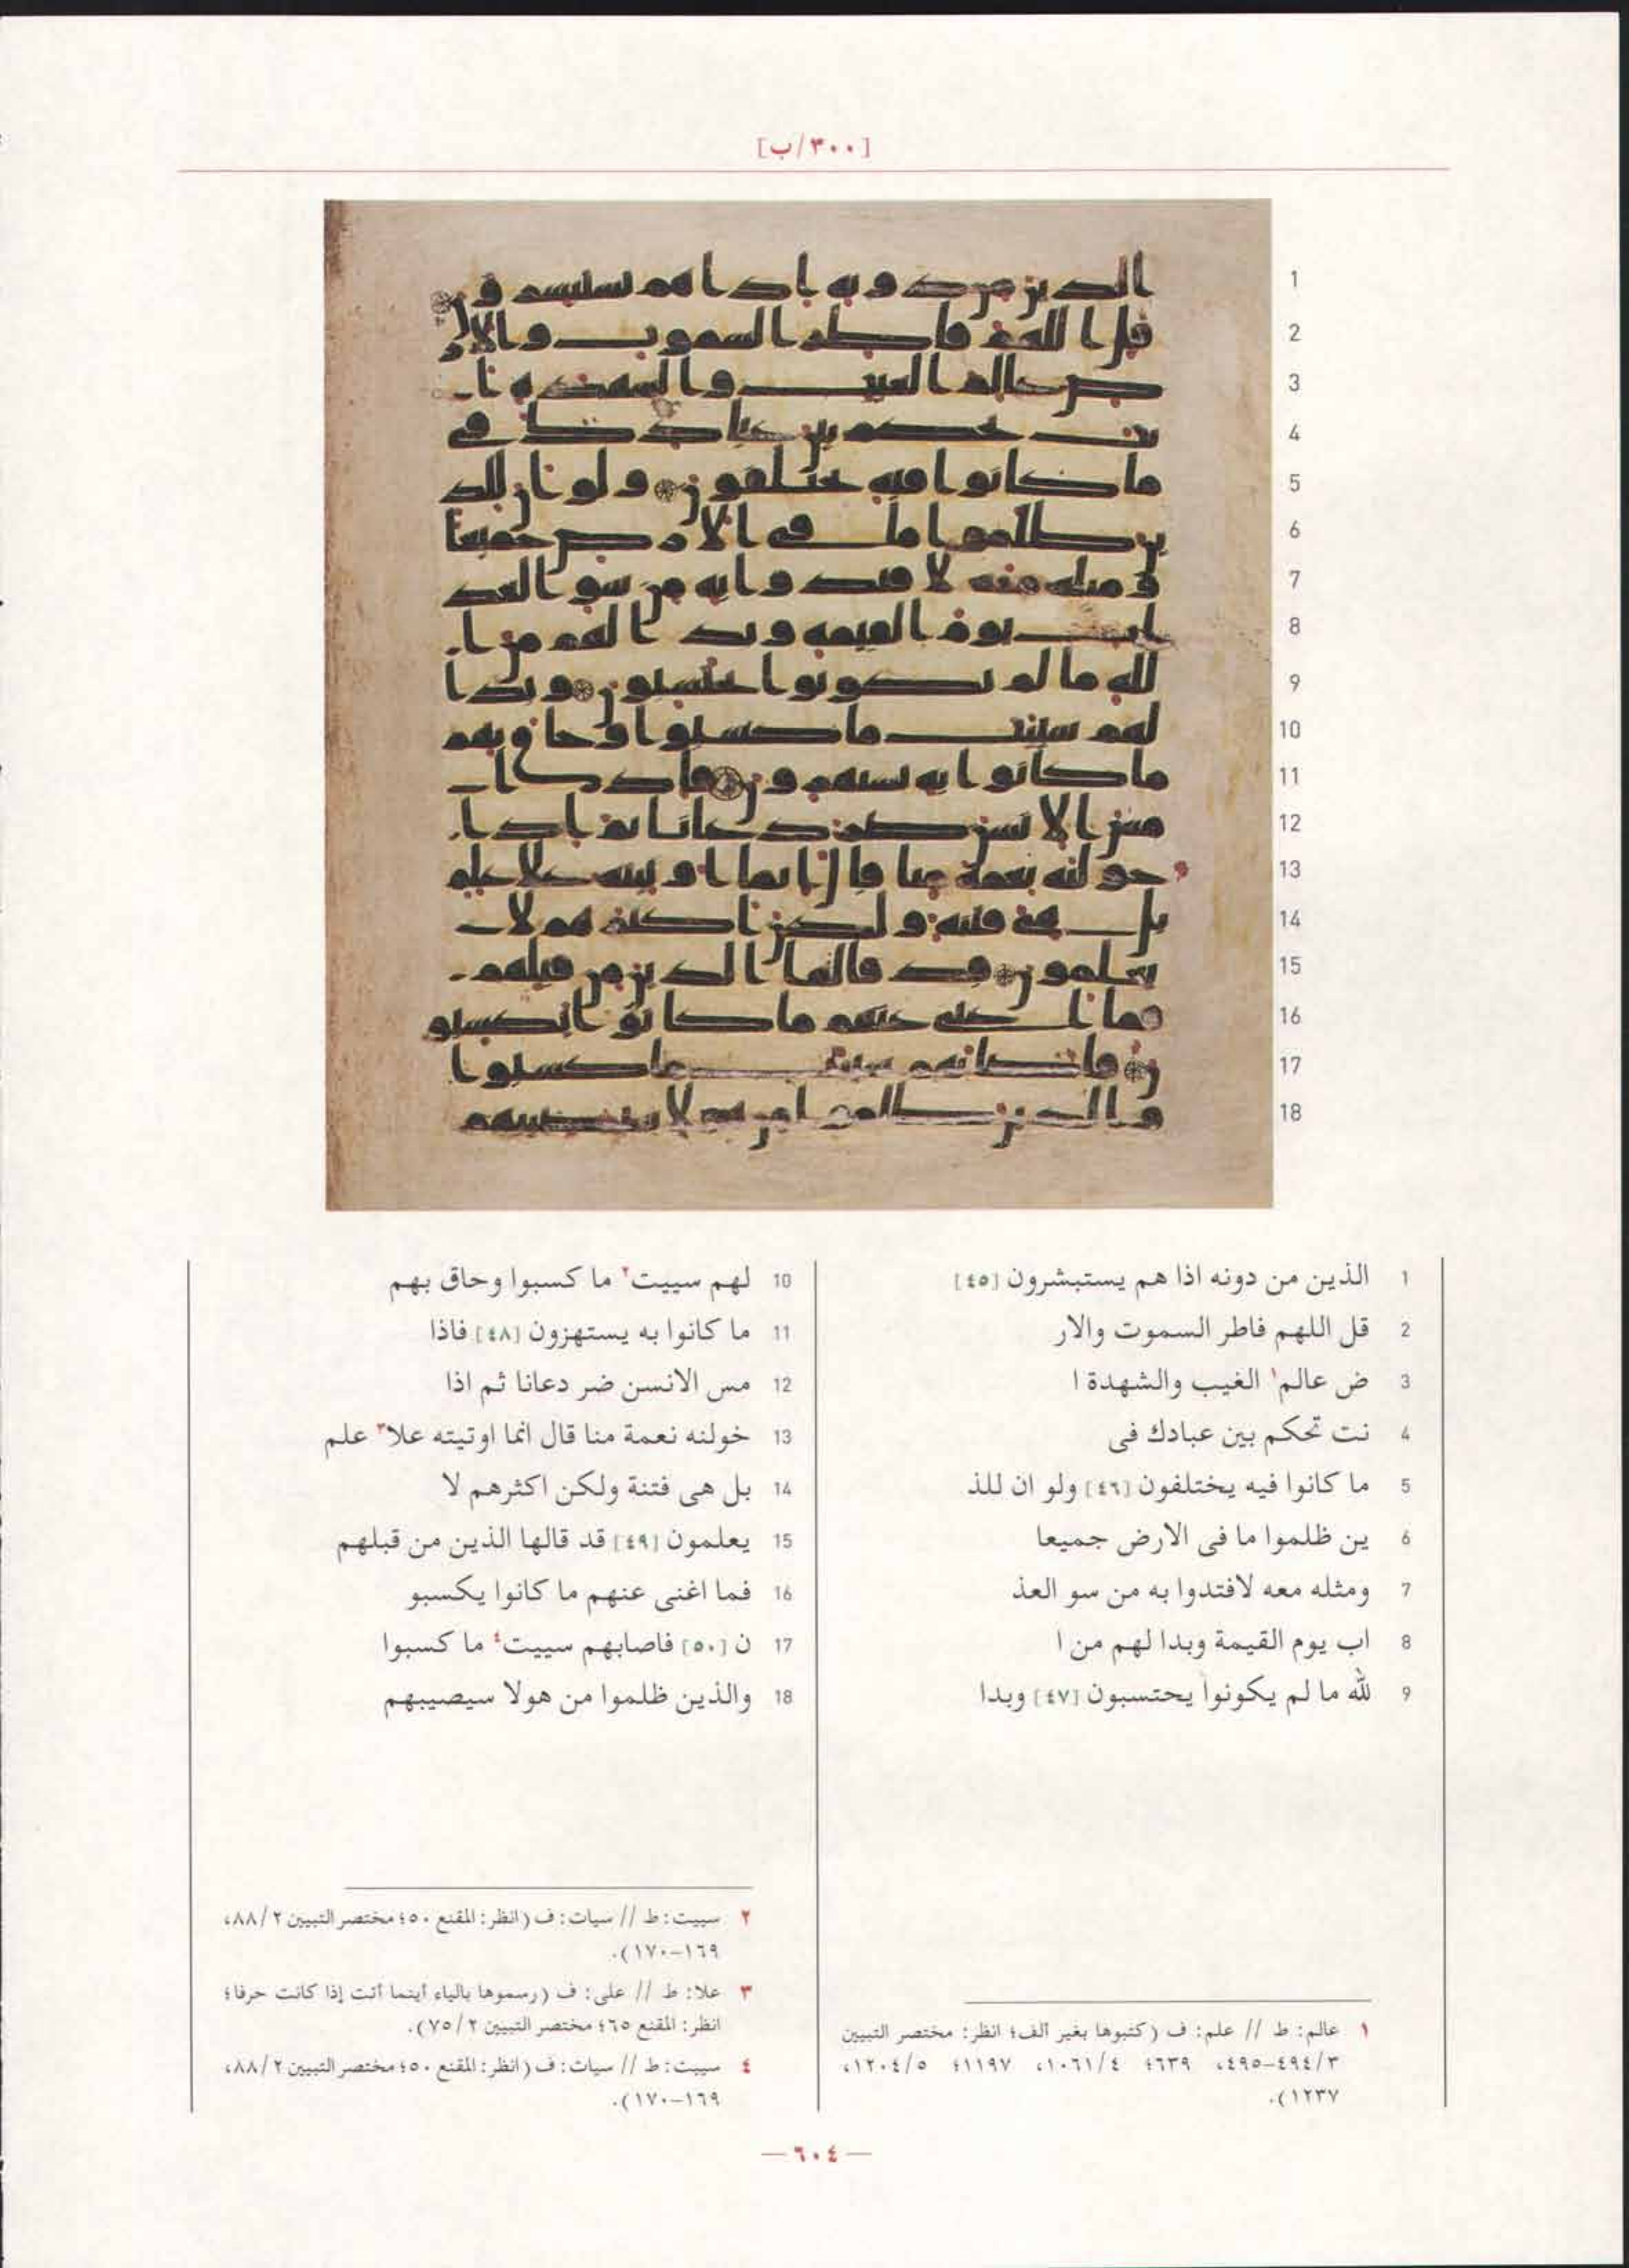 [٣٠٠/ب]
1 الذين من دونه اذا هم يستبشرون [٤٥]
2 قل اللهم فاطر السموت والار
3 ض عالم١ الغيب والشهدة ا
4 نت تحكم بين عبادك فى
5 ما كانوا فيه يختلفون [٤٦] ولو ان للذ
6 ين ظلموا ما فى الارض جميعا
7 ومثله معه لافتدوا به من سو العذ
8 اب يوم القيمة وبدا لهم من ا
9 لله ما لم يكونوا يحتسبون [٤٧] وبدا
10 لهم سييت٢ ما كسبوا وحاق بهم
11 ما كانوا به يستهزون [٤٨] فاذا
12 مس الانسن ضر دعانا ثم اذا
13 خولنه نعمة منا قال انما اوتيته علا٣ علم
14 بل هى فتنة ولكن اكثرهم لا
15 يعلمون [٤٩] قد قالها الذين من قبلهم
16 فما اغنى عنهم ما كانوا يكسبو
17 ن [٥٠] فاصابهم سييت٤ ما كسبوا
18 والذين ظلموا من هولا سيصيبهم
١ عالم: ط // علم: ف (كتبوها بغير ألف؛ انظر: مختصر التبيين
٣/٤٩٤-٤٩٥، ٦٣٩؛ ٤/١٠٦١، ١١٩٧؛ ٥/١٢٠٤،
١٢٣٧).
٢ سييت: ط // سيات: ف (انظر: المقنع ٥٠؛ مختصر التبيين ٢/٨٨،
١٦٩-١٧٠).
٣ علا: ط // على: ف (رسموها بالياء أينما أتت إذا كانت حرفا؛
انظر: المقنع ٦٥؛ مختصر التبيين ٢/٧٥).
٤ سييت: ط // سيات: ف (انظر: المقنع ٥٠؛ مختصر التبيين ٢/٨٨،
١٦٩-١٧٠).
— ٦٠٤ —